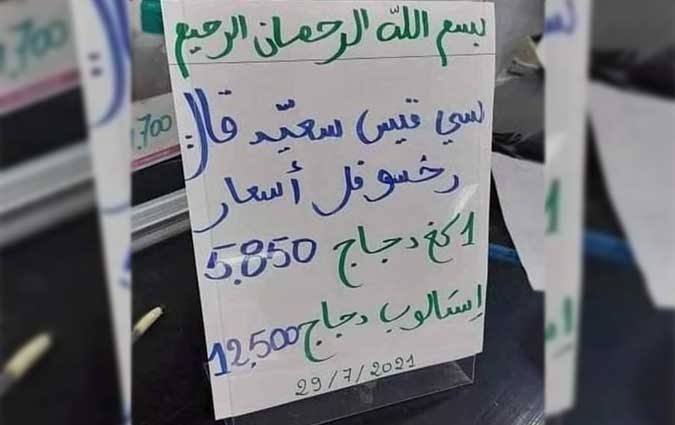 بسم الله الرحمان الرحيم
سي قيس سعيّد قال:
رخسو فل أسعار
1 كغ دجاج 5.850
إسالوب دجاج 12,500
29/7/2021
1,700